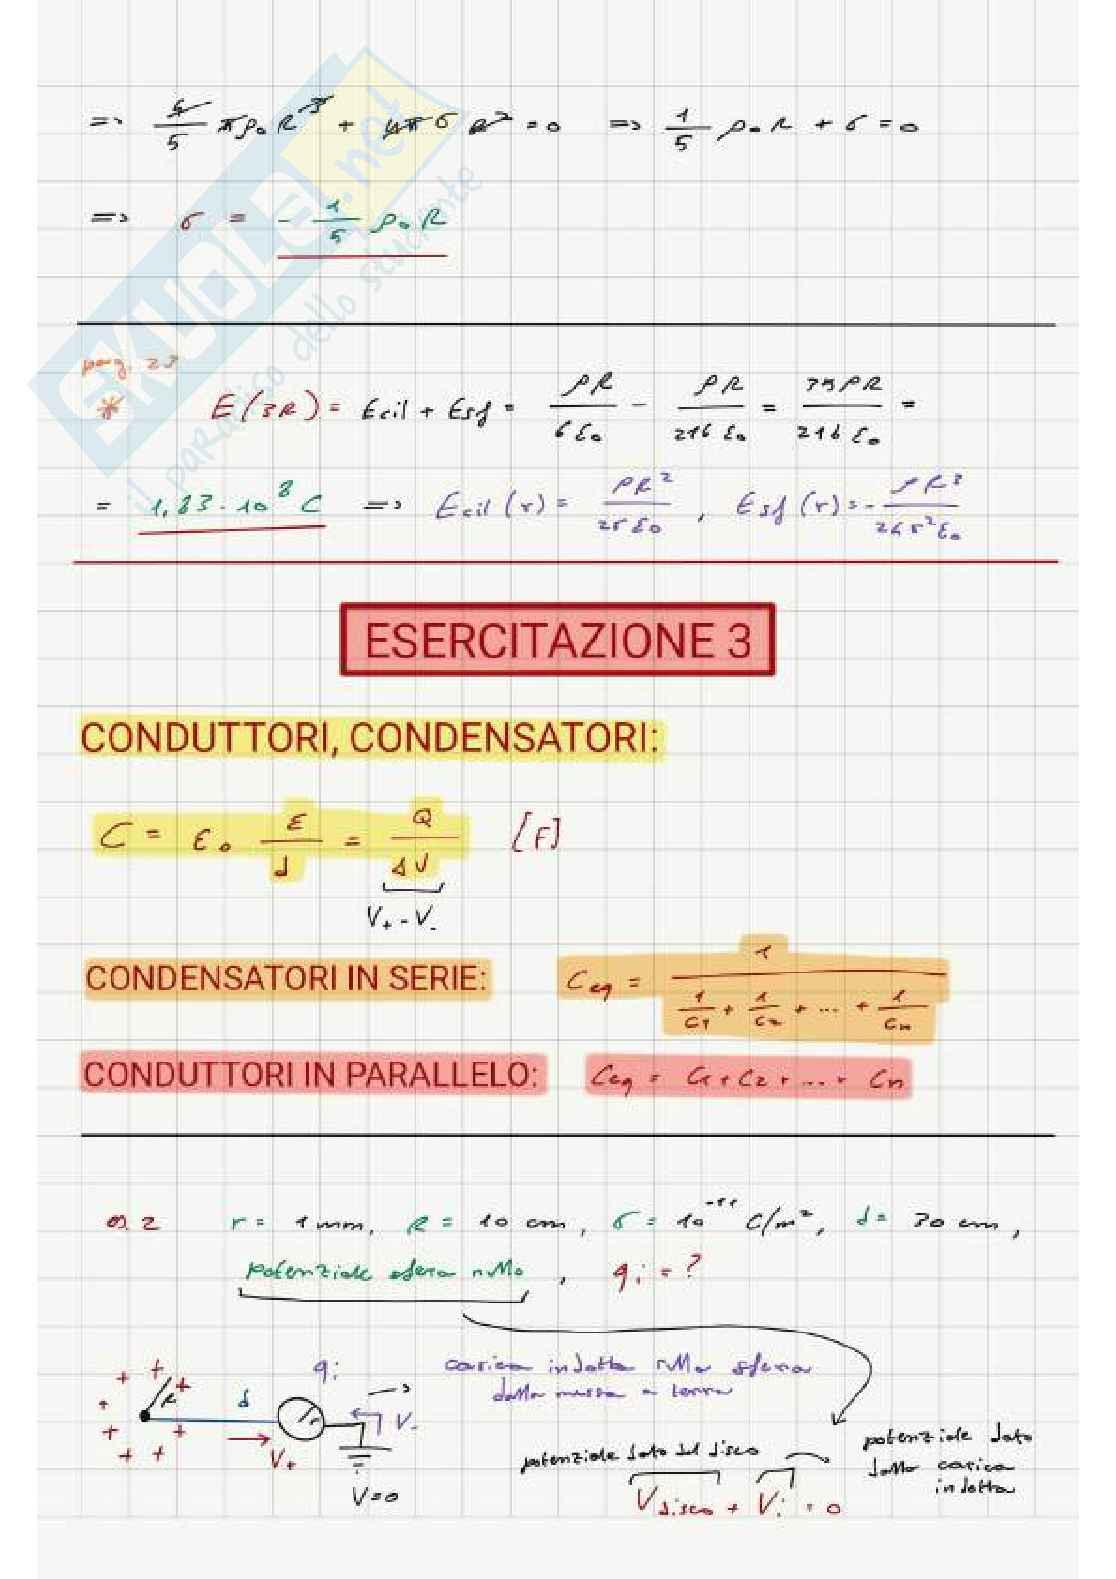 => 4/5 πρ₀R³ + 4πσR² = 0 => 1/5 ρ₀R + σ = 0
=> σ = - 1/5 ρ₀R
SKUOLA.net
il paradiso dello studente
pag. 23
* E(3R) = Ecil + Esf = ρR/6ε₀ - ρR/216ε₀ = 35ρR/216ε₀ =
= 1,83·10⁸ C => Ecil(r) = ρR²/2rε₀, Esf(r) = - ρR³/24r²ε₀
ESERCITAZIONE 3
CONDUTTORI, CONDENSATORI:
C = ε₀ Σ/d = Q/ΔV [F]
V₊ - V₋
CONDENSATORI IN SERIE: Ceq = 1/(1/C₁ + 1/C₂ + ... + 1/Cn)
CONDUTTORI IN PARALLELO: Ceq = C₁ + C₂ + ... + Cn
es. 2 r = 1 mm, R = 10 cm, σ = 10⁻¹¹ C/m², d = 30 cm,
potenziale sfera nullo, qi = ?
carica indotta sulla sfera
dalla messa a terra
qi
R
d
V₊
V₋
V=0
potenziale dato dal disco
potenziale dato
dalla carica
indotta
Vdisco + Vi = 0